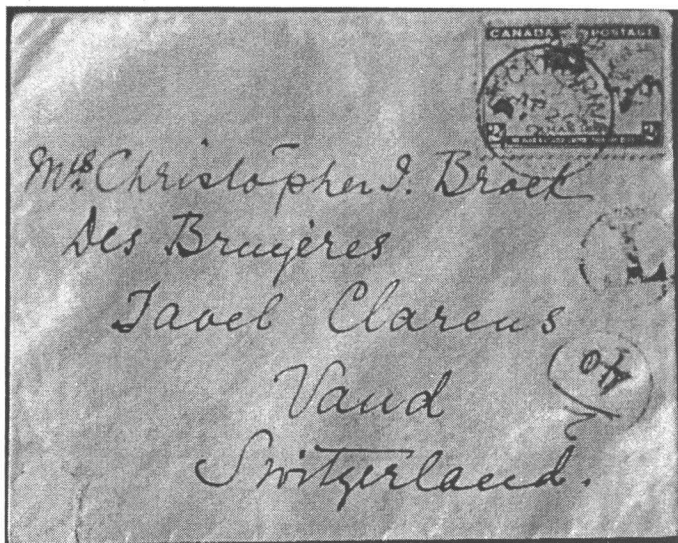 CANADA POSTAGE
2 2
Mrs Christopher I. Brock
Des Bruyères
Tavel Clarens
Vaud
Switzerland.